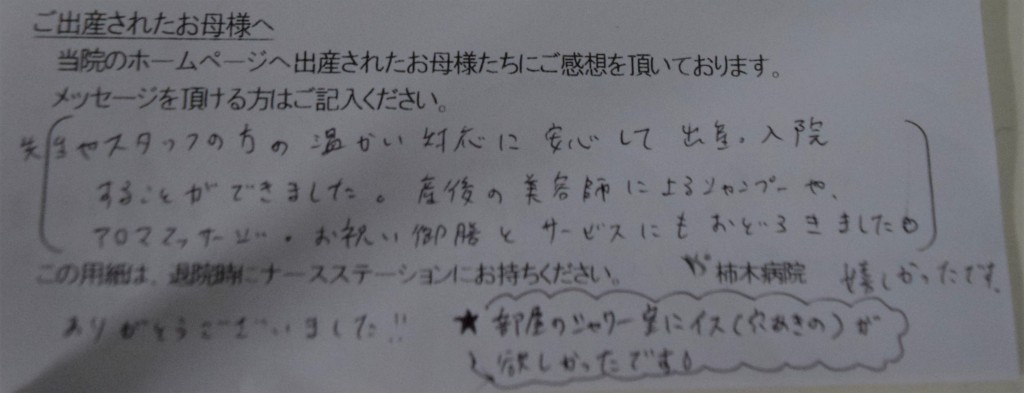 ご出産されたお母様へ
当院のホームページへ出産されたお母様たちにご感想を頂いております。
メッセージを頂ける方はご記入ください。
先生やスタッフの方の温かい対応に安心して出産、入院
することができました。産後の美容師によるシャンプーや、
アロママッサージ・お祝い御膳とサービスにもおどろきました
この用紙は、退院時にナースステーションにお持ちください。 柿木病院 嬉しかったです。
ありがとうございました!!
★部屋のシャワー室にイス(穴あきの)が
欲しかったです。